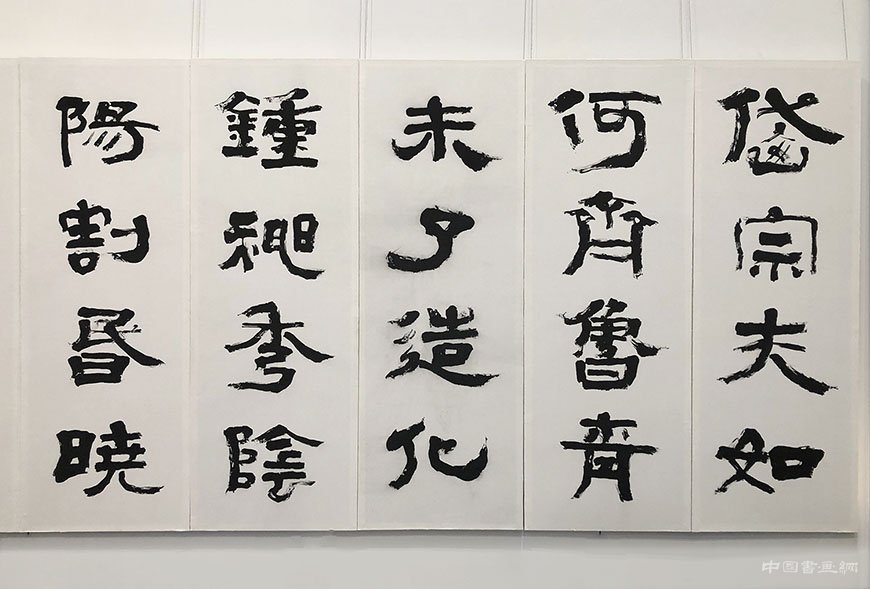 岱宗夫如
何齊魯青
未了造化
鍾神秀陰
陽割昏曉
中国書画網